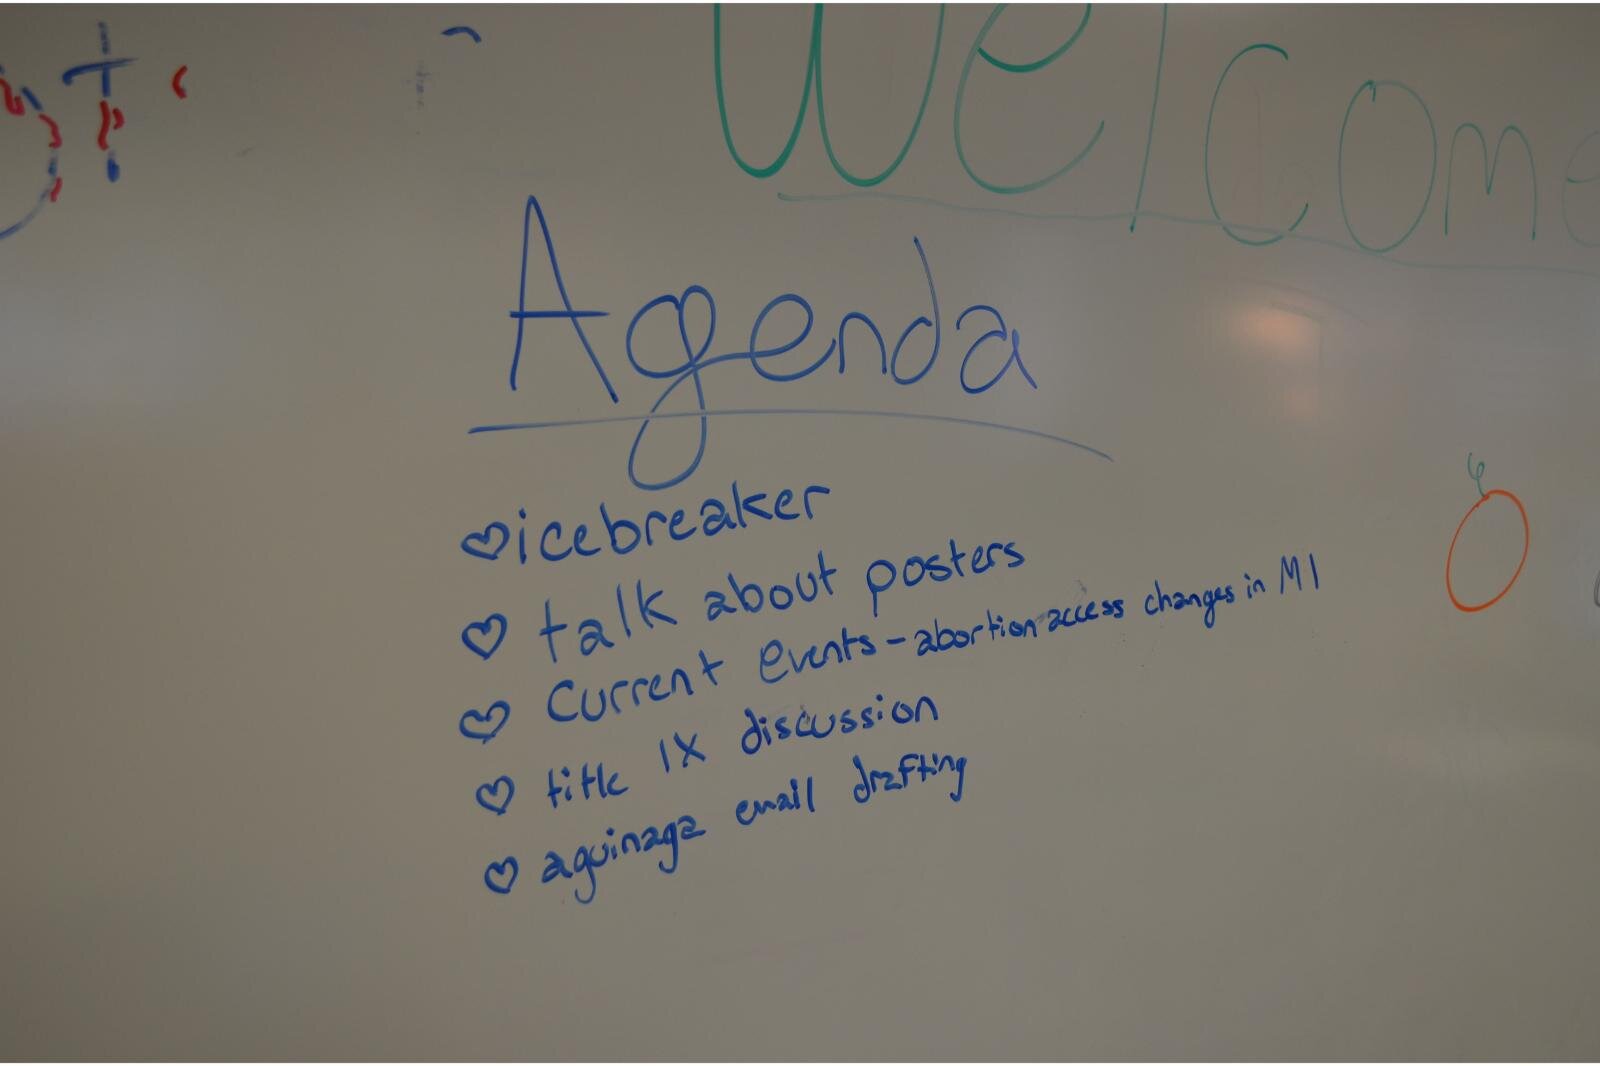 Welcome
Agenda
icebreaker
talk about posters
Current events - abortion access changes in MI
title IX discussion
aguinaga email drafting